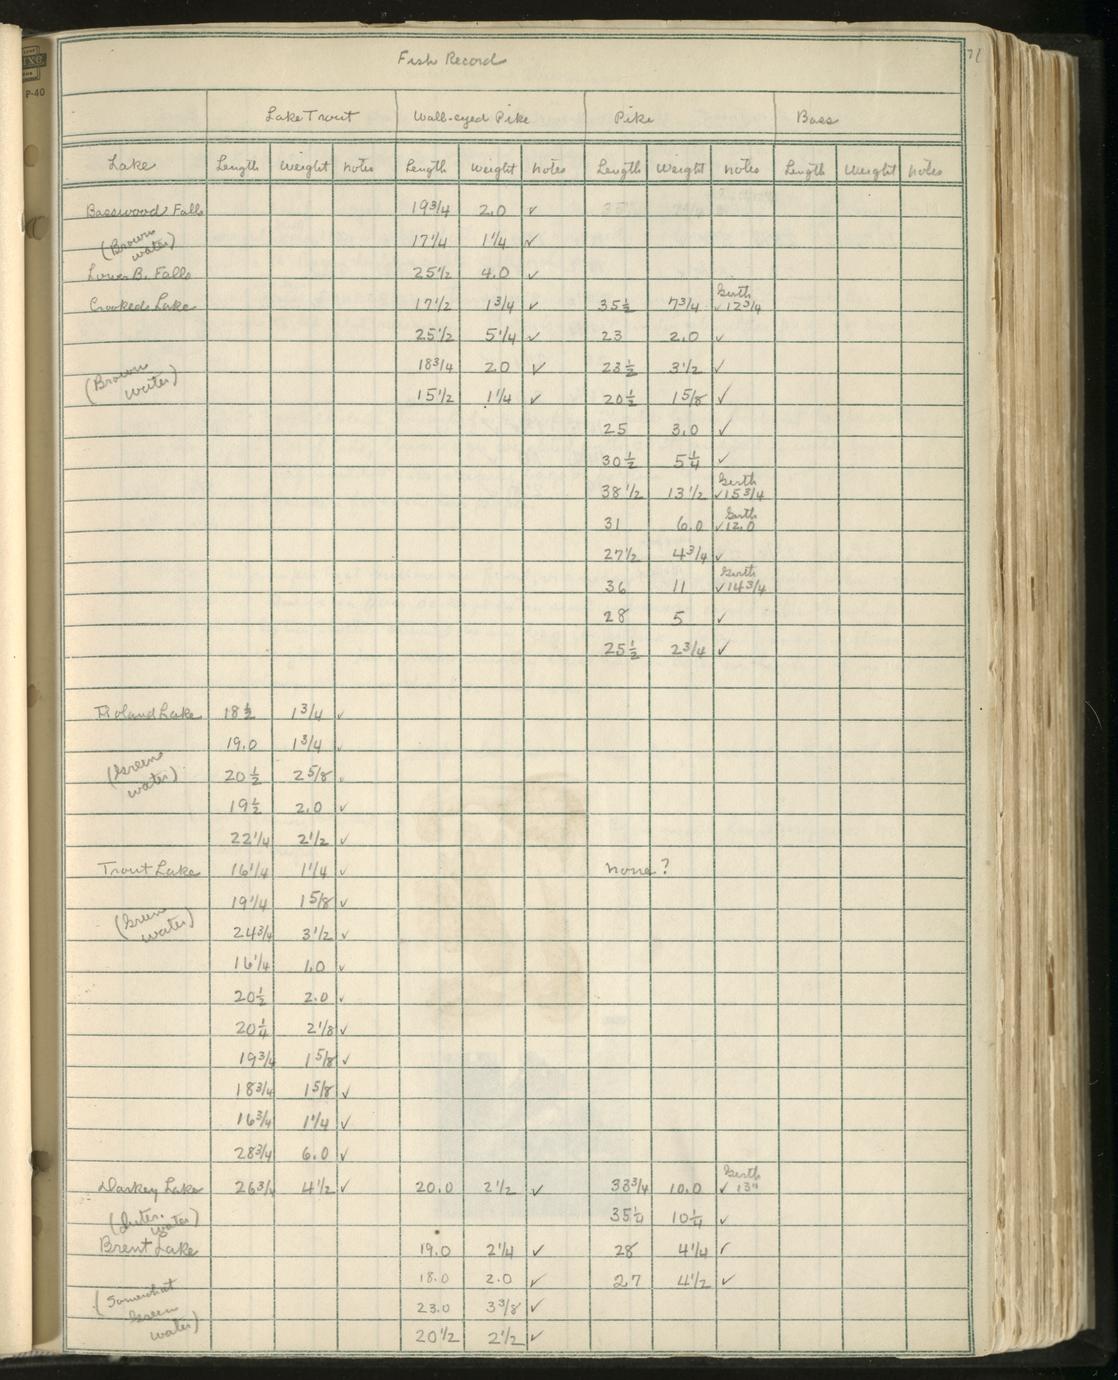 71
P-40
Fish Record
Lake Trout Wall-eyed Pike Pike Bass
Lake Length Weight notes Length Weight notes Length Weight notes Length Weight notes
Basswood Falls 19 3/4 2.0 ✓
(Brown water) 17 1/4 1 1/4 ✓
Lower B. Falls 25 1/2 4.0 ✓
Crooked Lake 17 1/2 1 3/4 ✓ 35 1/2 7 3/4 Girth ✓ 12 3/4
25 1/2 5 1/4 ✓ 23 2.0 ✓
(Brown water) 18 3/4 2.0 ✓ 23 1/2 3 1/2 ✓
15 1/2 1 1/4 ✓ 20 1/2 1 5/8 ✓
25 3.0 ✓
30 1/2 5 1/4 ✓
38 1/2 13 1/2 Girth ✓ 15 3/4
31 6.0 Girth ✓ 12.0
27 1/2 4 3/4 ✓
36 11 Girth ✓ 14 3/4
28 5 ✓
25 1/2 2 3/4 ✓
Roland Lake 18 1/2 1 3/4 ✓
19.0 1 3/4 ✓
(Green water) 20 1/2 2 5/8 ✓
19 1/2 2.0 ✓
22 1/4 2 1/2 ✓
Trout Lake 16 1/4 1 1/4 ✓ none?
19 1/4 1 5/8 ✓
(Green water) 24 3/4 3 1/2 ✓
16 1/4 1.0 ✓
20 1/2 2.0 ✓
20 1/4 2 1/8 ✓
19 3/4 1 5/8 ✓
18 3/4 1 5/8 ✓
16 3/4 1 1/4 ✓
28 3/4 6.0 ✓
Darkey Lake 26 3/4 4 1/2 ✓ 20.0 2 1/2 ✓ 33 3/4 10.0 Girth ✓ 13"
(Inter. water) 35 1/4 10 1/4 ✓
Brent Lake 19.0 2 1/4 ✓ 28 4 1/4 ✓
18.0 2.0 ✓ 27 4 1/2 ✓
(Somewhat Green water) 23.0 3 3/8 ✓
20 1/2 2 1/2 ✓